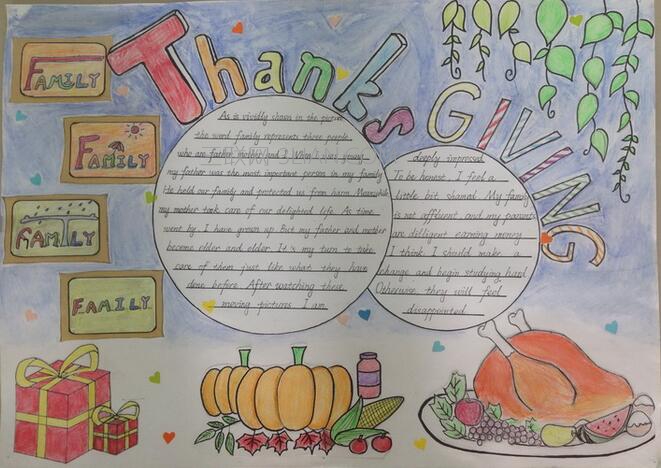 Thanks
GIVING
FAMILY
FAMILY
FAMILY
FAMILY
As is vividly shown in the picture
the word family represents three people
who are father, mother and I. When I was young,
my father was the most important person in my family
He held our family and protected us from harm. Meanwhile
my mother took care of our delighted life. As time
went by I have grown up but my father and mother
become elder and elder. It's my turn to take
care of them just like what they have
done before. After watching these
moving pictures, I am
deeply impressed.
To be honest, I feel a
little bit shamed. My family
is not affluent and my parents
are dilligent earning money
I think I should make a
change and begin studying hard
Otherwise they will feel
disappointed